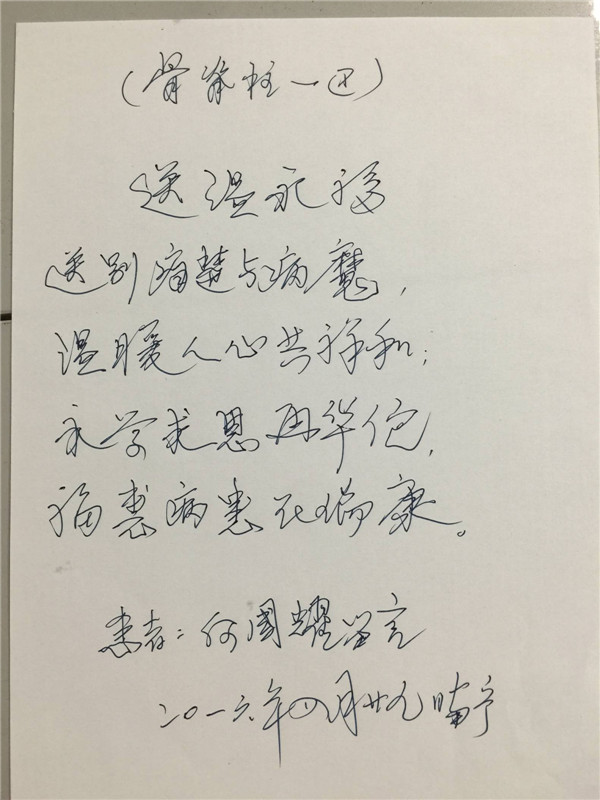 (骨脊柱一区)
送温永福
送别痛楚与病魔，
温暖人心共祥和；
永学求恩再华佗，
福惠病患比健康。
患者：何国耀留言
二〇一六年四月廿九日